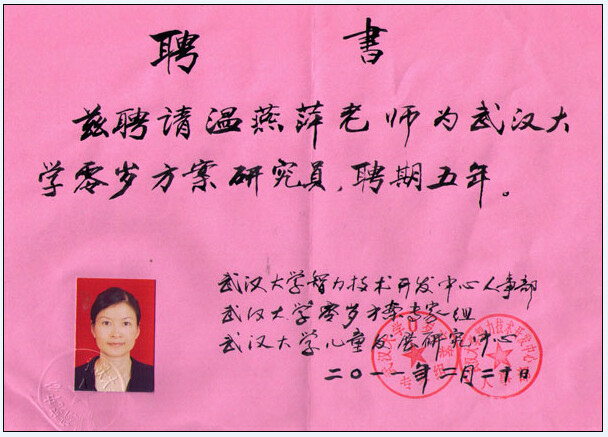 聘書
兹聘请温燕萍老师为武汉大
学零岁方案研究员,聘期五年。
武汉大学智力技术开发中心人事部
武汉大学零岁方案专家组
武汉大学儿童发展研究中心
二〇一一年二月二十日